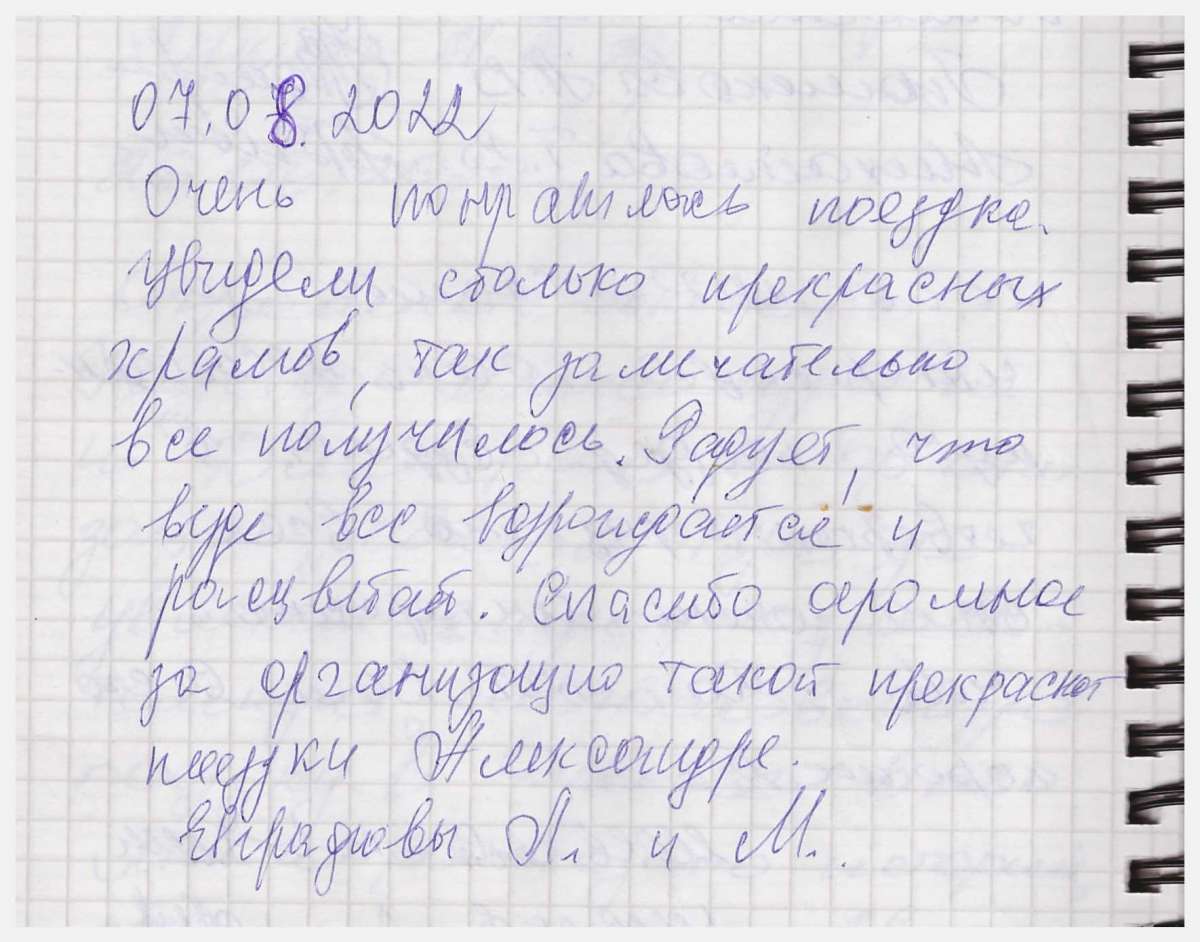 07.08.2022
Очень понравилась поездка.
Увидели столько прекрасных
храмов, так замечательно
все получилось. Радует, что
везде все возрождается и
расцветает. Спасибо огромное
за организацию такой прекрасной
поездки Александре.
Л. и М.